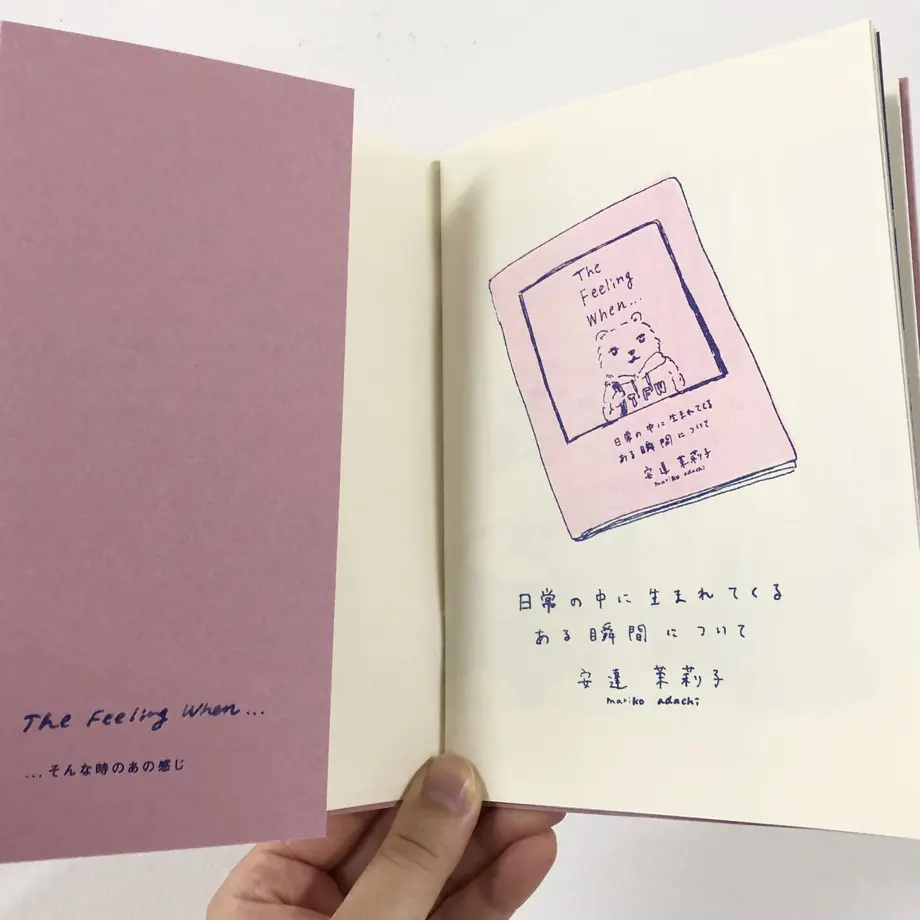 The Feeling When...
...そんな時のあの感じ
The
Feeling
When...
TFW
日常の中に生まれてくる
ある瞬間について
安達茉莉子
mariko adachi
日常の中に生まれてくる
ある瞬間について
安達 茉莉子
mariko adachi